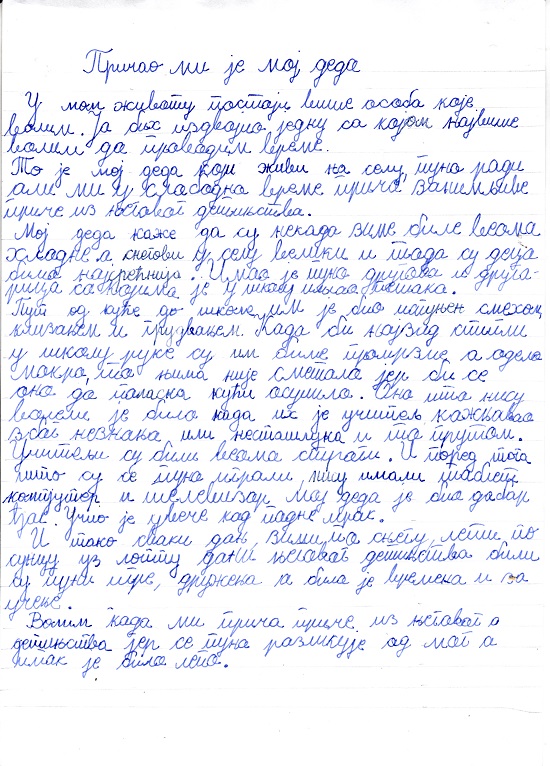 Причао ми је мој деда
У мом животу постоји више особа које
волим. Ја бих издвојио једну са којом највише
волим да проводим време.
То је мој деда који живи на селу, пуно ради
али ми у слободна време прича занимљиве
приче из његовог детињства.
Мој деда каже да су некада зиме биле веома
хладне а снегови у селу велики и тада су деца
била најсрећнија. Имао је пуно другова и друга-
рица са којима је у школу ишао пешака.
Пут од куће до школе им је био испуњен смехом,
клизањем и грудвањем. Када би најзад стигли
у школу руке су им биле промрзле а одела
мокра, то њима није сметала јер би се
оно да поласка кући осушило. Оно шта нису
волели је било када их је учитељ кажњавао
због незнања или несташлука и то прутом.
Учитељи су били веома строги. И поред тога
што су се пуно играли, нису имали таблет,
компјутер и телевизор мој деда је био добар
ђак. Учио је увече кад падне мрак.
И тако сваки дан, зими по снегу, лети по
сунцу уз лопту дани његовог детињства били
су пуни игре, дружења а била је времена и за
учење.
Волим када ми прича приче из његовог
детињства јер се пуно разликује од мог а
ипак је било лепо.